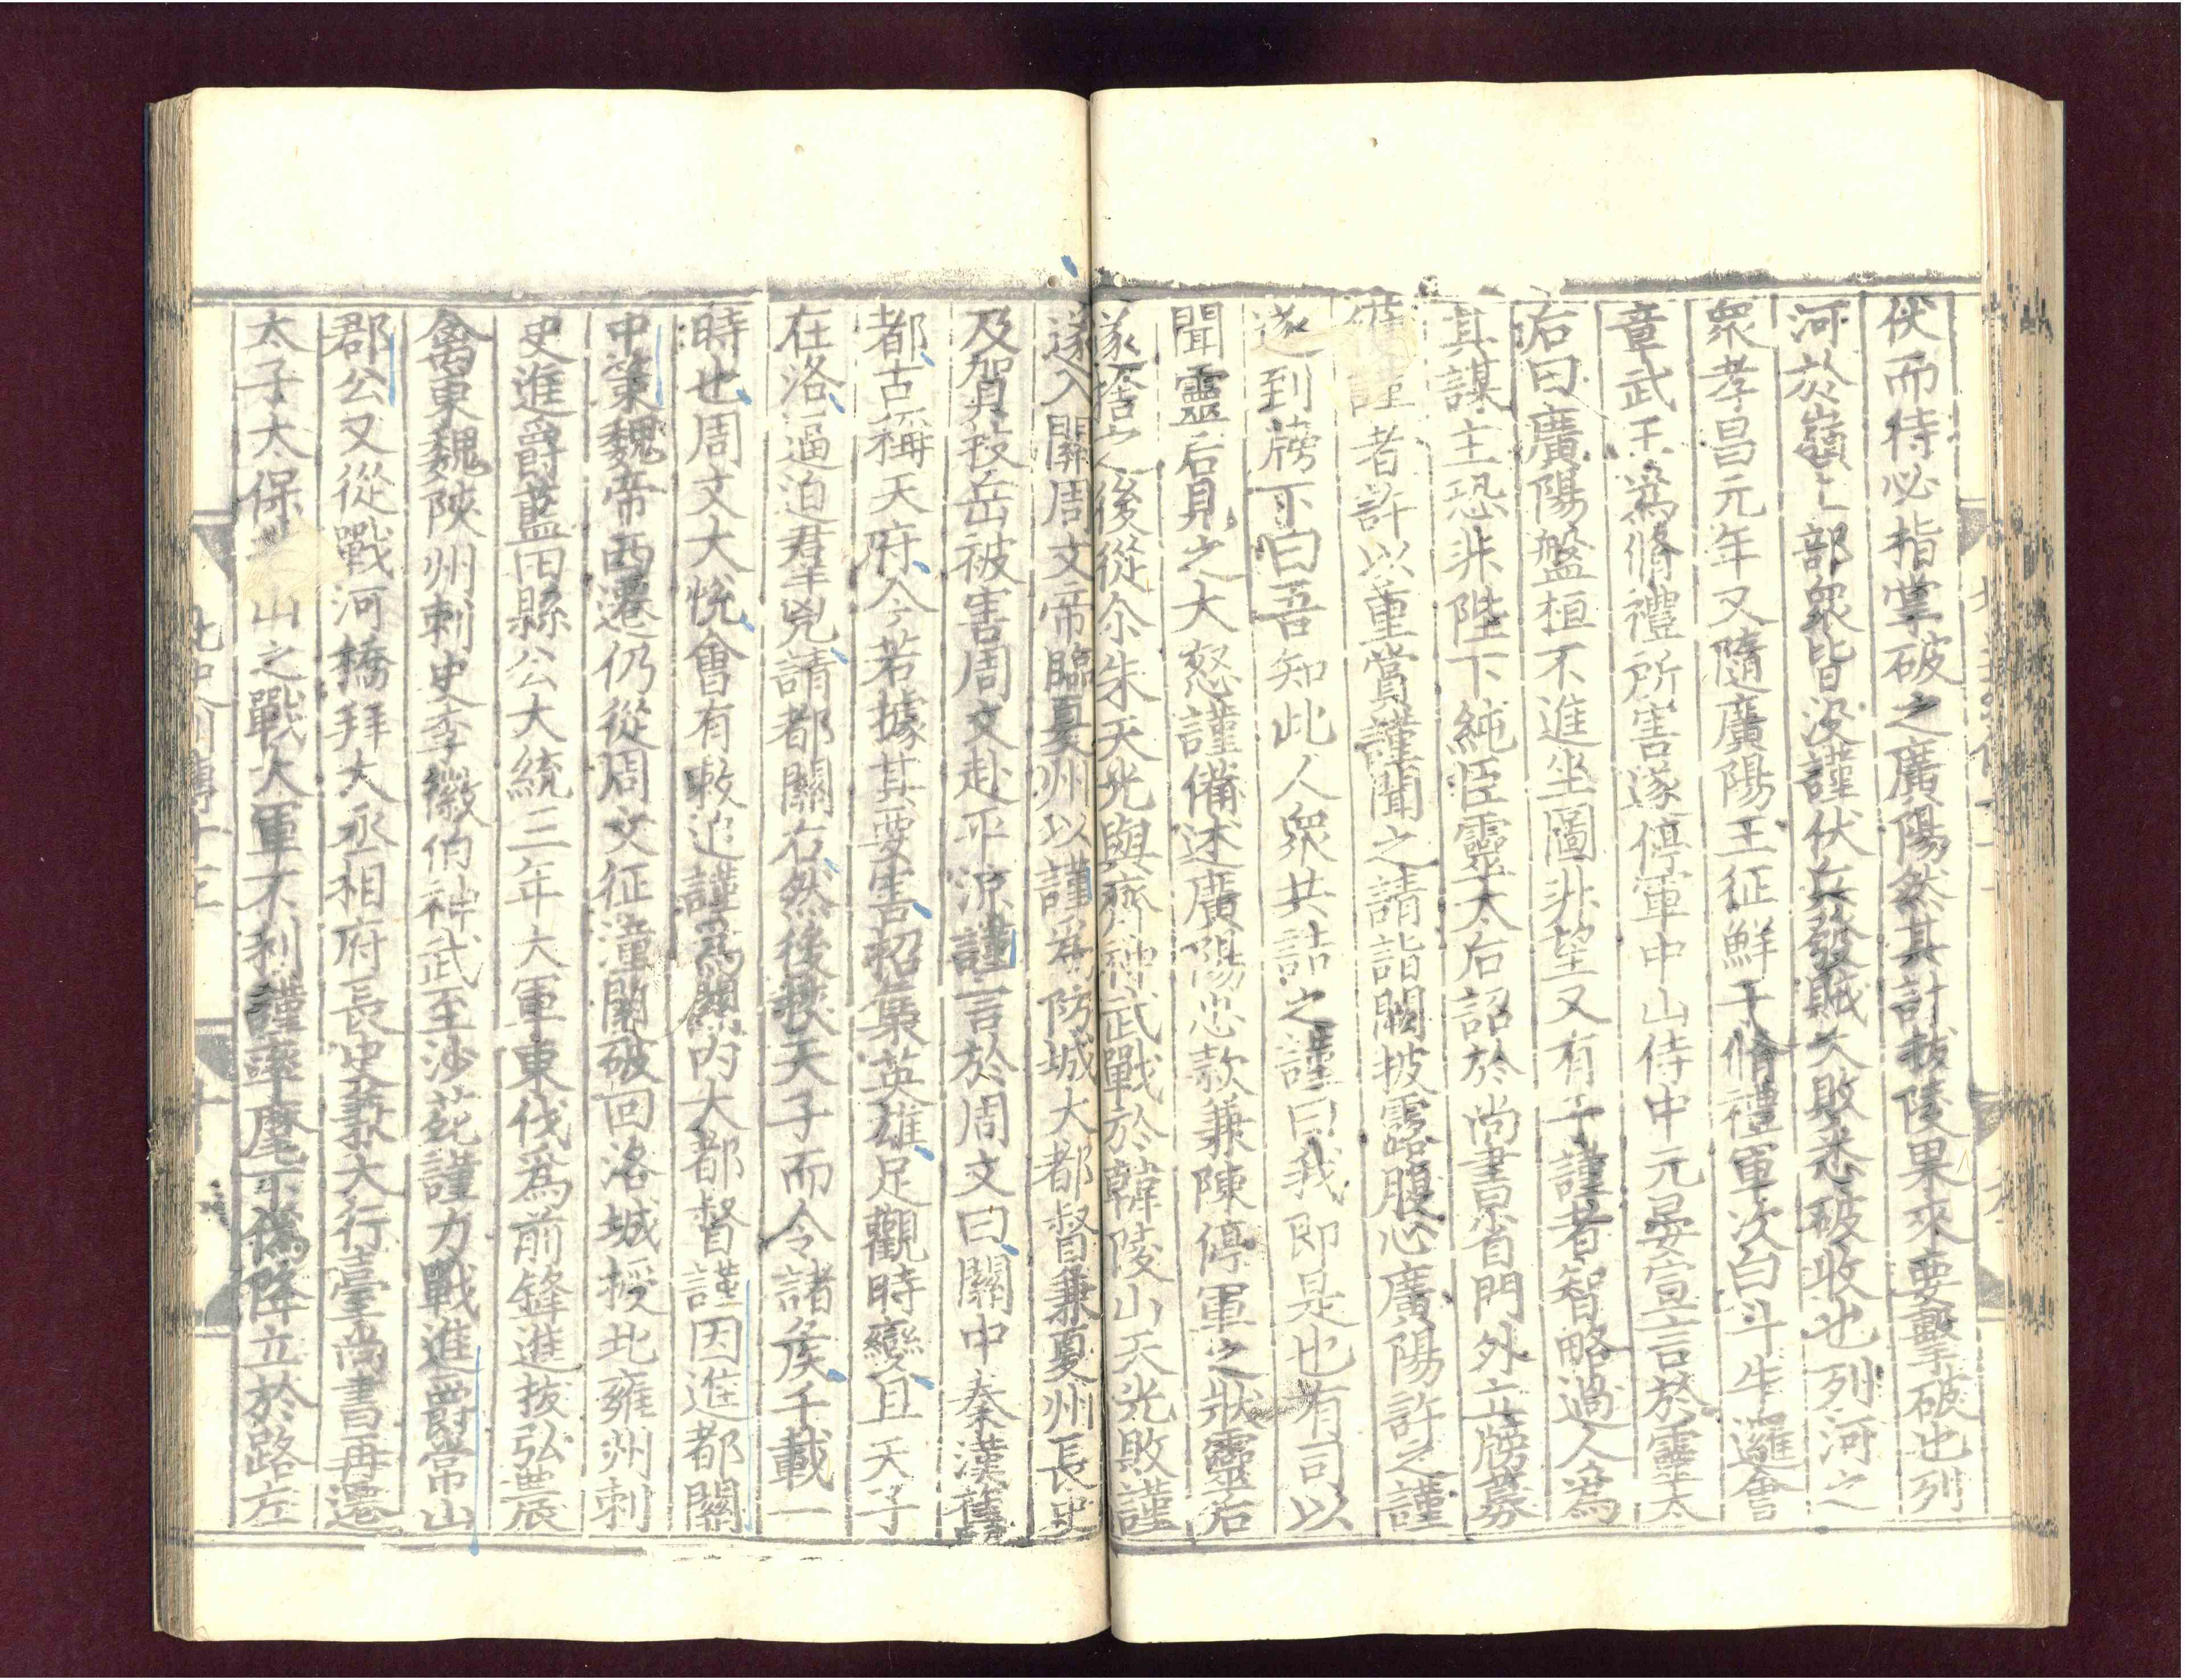 伏而待必指掌破之廣陽然其計拔陵果來要擊破也列
河於嶺上部衆皆没謹伏兵發賊大敗悉破收也列河之
衆孝昌元年又隨廣陽王征鮮于脩禮軍次白斗牛邏會
章武王爲脩禮所害遂停軍中山侍中元晏宣言於靈太
后曰廣陽盤桓不進坐圖非望又有于謹者智略過人爲
其謀主恐非陛下純臣靈太后詔於尚書省門外立牓募
謹者許以重賞謹聞之請詣闕披露腹心廣陽許之謹
遂到牓下曰吾知此人衆共詰之謹曰我即是也有司以
聞靈后見之大怒謹備述廣陽忠款兼陳停軍之狀靈后
遂捨之後從尒朱天光與齊神武戰於韓陵山天光敗謹
遂入關周文帝臨夏州以謹爲防城大都督兼夏州長史
及賀拔岳被害周文赴平涼謹言於周文曰關中秦漢舊
都古稱天府今若據其要害招集英雄足觀時變且天子
在洛逼迫羣兇請都關右然後挾天子而令諸侯千載一
時也周文大悅會有敕追謹爲關內大都督謹因進都關
中策魏帝西遷仍從周文征潼關破回洛城授北雍州刺
史進爵藍田縣公大統三年大軍東伐爲前鋒進拔弘農
禽東魏陝州刺史李徽伯神武至沙苑謹力戰進爵常山
郡公又從戰河橋拜大丞相府長史兼大行臺尚書再遷
太子太保山之戰大軍不利謹率麾下僞降立於路左